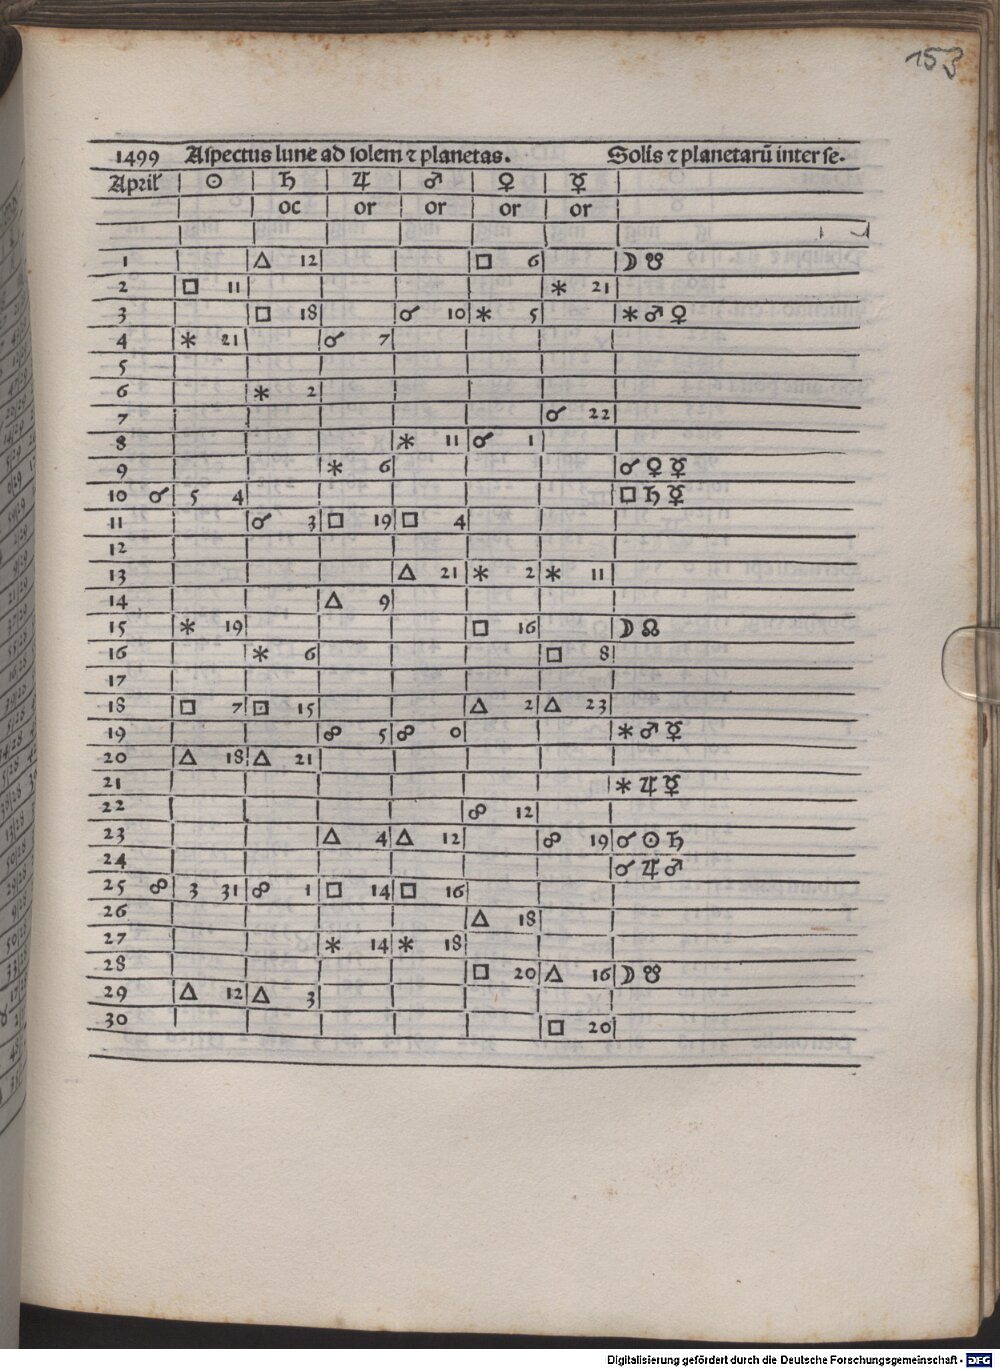 153
1499 Aſpectus lune ad ſolem ⁊ planetas. Solis ⁊ planetarũ inter ſe.
April ☉ ♄ ♃ ♂ ♀ ☿
oc or or or or
1 △ 12 □ 6 ☽ ☋
2 □ 11 ⚹ 21
3 □ 18 ☌ 10 ⚹ 5 ⚹ ♂ ♀
4 ⚹ 21 ☌ 7
5
6 ⚹ 2
7 ☌ 22
8 ⚹ 11 ☌ 1
9 ⚹ 6 ☌ ♀ ☿
10 ☌ 5 4 □ ♄ ☿
11 ☌ 3 □ 19 □ 4
12
13 △ 21 ⚹ 2 ⚹ 11
14 △ 9
15 ⚹ 19 □ 16 ☽ ☊
16 ⚹ 6 □ 8
17
18 □ 7 □ 15 △ 2 △ 23
19 ☍ 5 ☍ 0 ⚹ ♂ ☿
20 △ 18 △ 21
21 ⚹ ♃ ☿
22 ☍ 12
23 △ 4 △ 12 ☍ 19 ☌ ☉ ♄
24 ☌ ♃ ♂
25 ☍ 3 31 ☍ 1 □ 14 □ 16
26 △ 18
27 ⚹ 14 ⚹ 18
28 □ 20 △ 16 ☽ ☋
29 △ 12 △ 3
30 □ 20
Digitalisierung gefördert durch die Deutsche Forschungsgemeinschaft - DFG